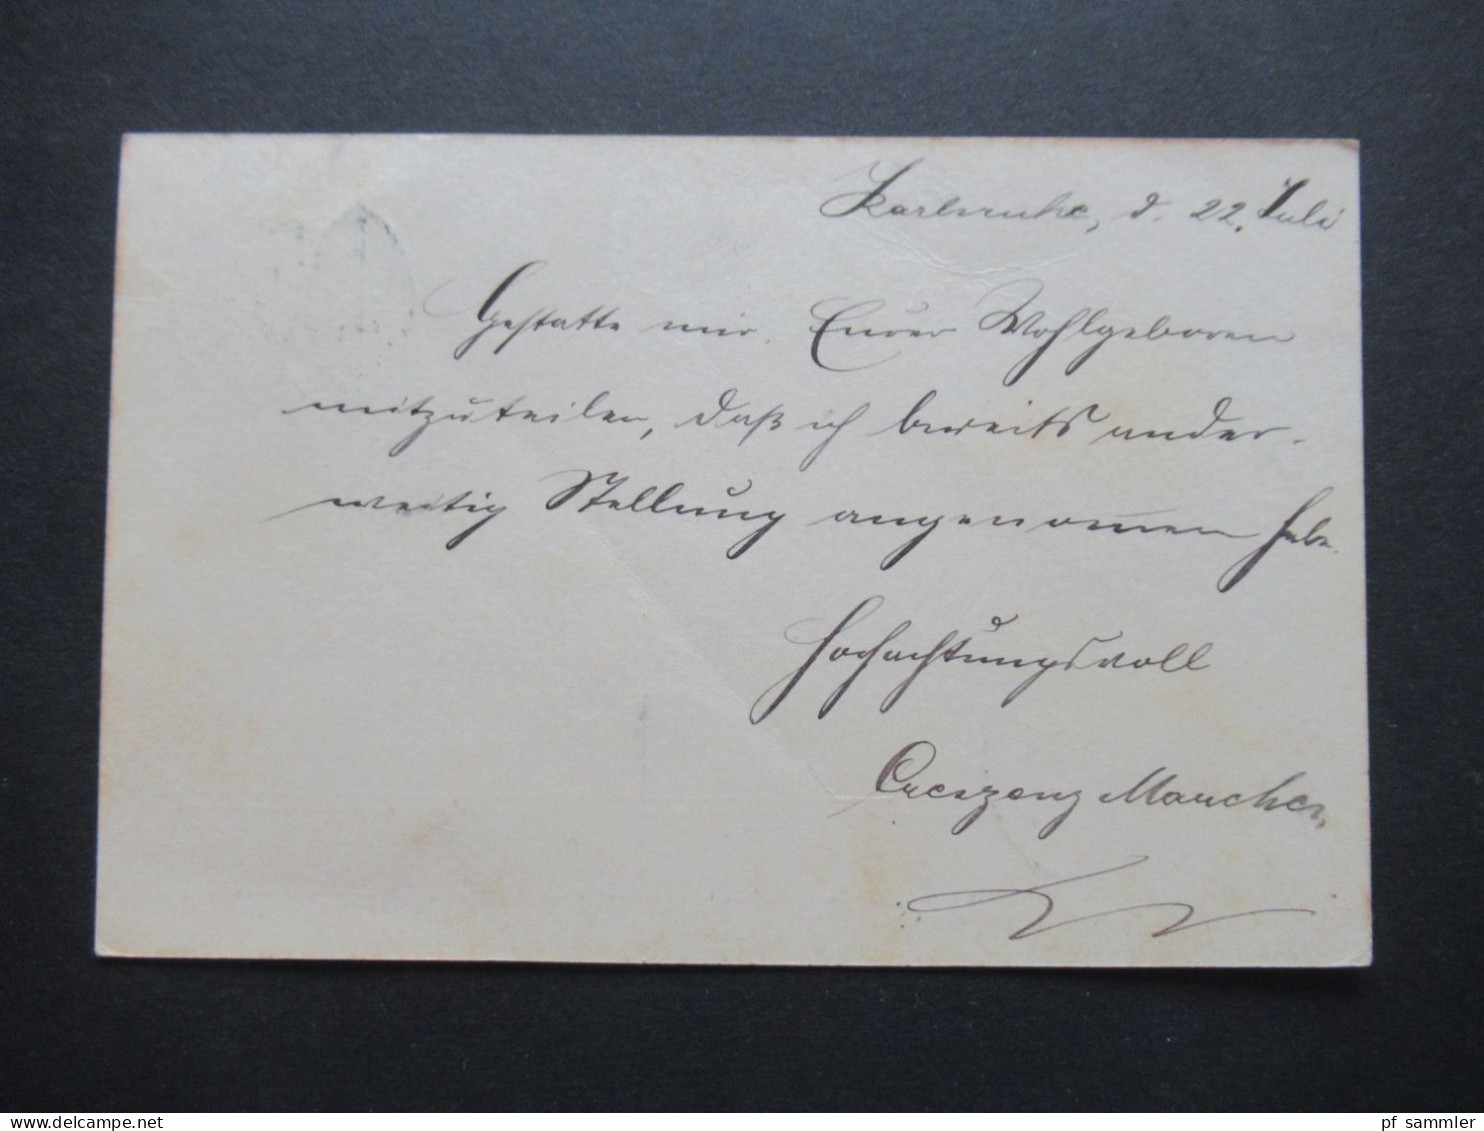 Karlsruhe, d. 22. Juli
Gestatte mir Eurer Wohlgeboren
mitzuteilen, daß ich bereits ander-
weitig Stellung angenomen habe.
Hochachtungsvoll
Creszenz Maucher
pf_sammler - delcampe.net